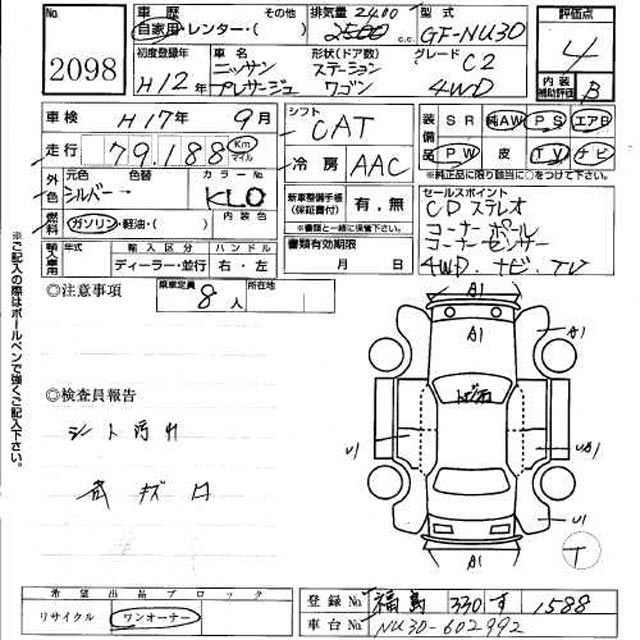 No.
2098
車歴 その他
自家用・レンター・( )
排気量 2400
2500 c.c.
型式
GF-NU30
評価点
4
初度登録年
H12年
車名
ニッサン
プレサージュ
形状(ドア数)
ステーション
ワゴン
グレード
C2
4WD
内装
補助評価 B
車検 H17年 9月
走行 79,188 Km マイル
シフト
CAT
冷房 AAC
装備品 SR 純AW PS エアB
PW 皮 TV ナビ
※純正品に限り該当に○をつけて下さい。
外色 元色 色替 カラーNo.
シルバー KL0
燃料 ガソリン・軽油・( ) 内装色
新車整備手帳
(保証書付) 有.無
※書類と一緒に保管下さい。
セールスポイント
CDステレオ
コーナーポール
コーナーセンサー
4WD.ナビ.TV
輸入車用 年式 輸入区分 ハンドル
ディーラー・並行 右・左
書類有効期限
月 日
◎注意事項
乗車定員 8人 所在地
※ご記入の際はボールペンで強くご記入下さい。
A1
A1
A1
◎検査員報告
シート汚れ
U1
U1
A1
T
希望出品ブロック
リサイクル ワンオーナー
登録No. 福島 330 す 1588
車台No. NU30-602992